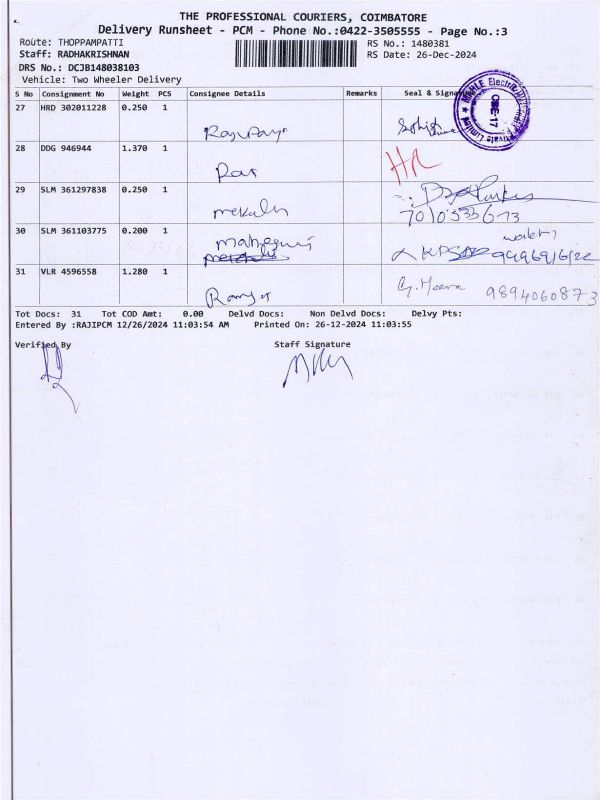 THE PROFESSIONAL COURIERS, COIMBATORE
Delivery Runsheet - PCM - Phone No.:0422-3505555 - Page No.:3
Route: THOPPAMPATTI
RS No.: 1480381
Staff: RADHAKRISHNAN
RS Date: 26-Dec-2024
DRS No.: DCJB148038103
Vehicle: Two Wheeler Delivery
S No Consignment No Weight PCS Consignee Details Remarks Seal & Signature
27 HRD 302011228 0.250 1
28 DDG 946944 1.370 1
HR
29 SLM 361297838 0.250 1
30 SLM 361103775 0.200 1
31 VLR 4596558 1.280 1
G. Meera 9894060873
Tot Docs: 31 Tot COD Amt: 0.00 Delvd Docs: Non Delvd Docs: Delvy Pts:
Entered By :RAJIPCM 12/26/2024 11:03:54 AM Printed On: 26-12-2024 11:03:55
Verified By Staff Signature